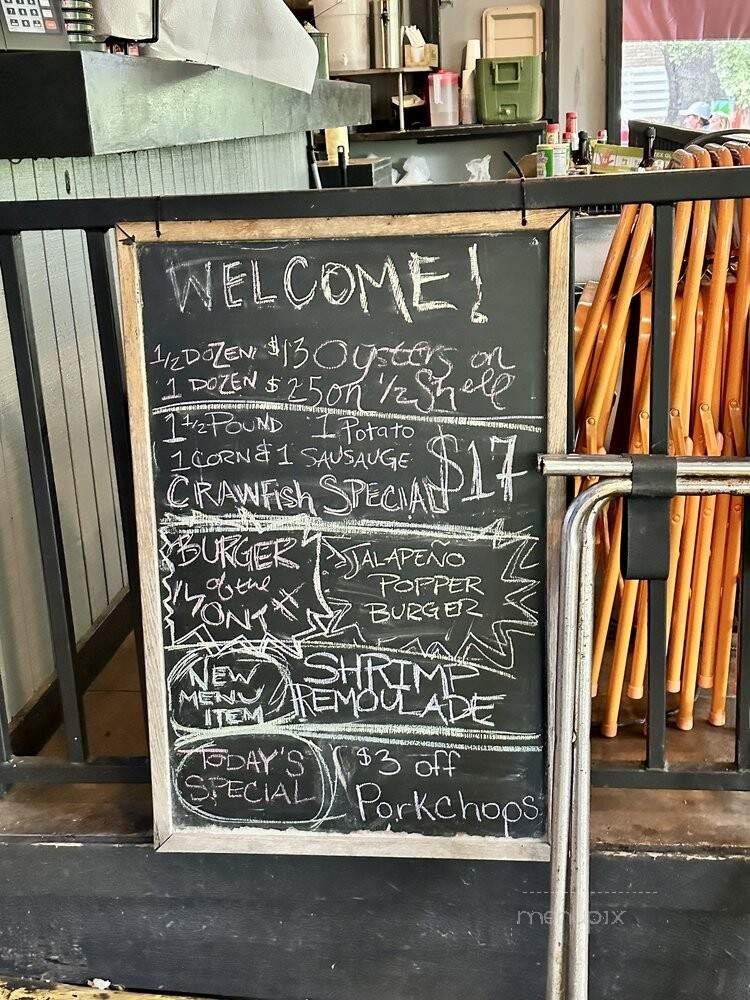 WELCOME!
1/2 DOZEN $13 Oysters on
1 DOZEN $25 on 1/2 Shell
1 1/2 POUND 1 Potato
1 CORN & 1 SAUSAUGE $17
CRAWFISH SPECIAL
BURGER
of the
MONTH
JALAPEÑO
POPPER
BURGER
NEW
MENU
ITEM
SHRIMP
REMOULADE
TODAY'S
SPECIAL
$3 off
Porkchops
menupix